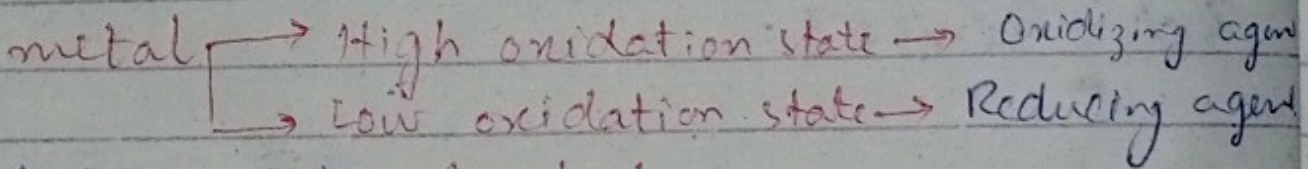 metal → High oxidation state → Oxidizing agen
→ Low oxidation state → Reducing agent